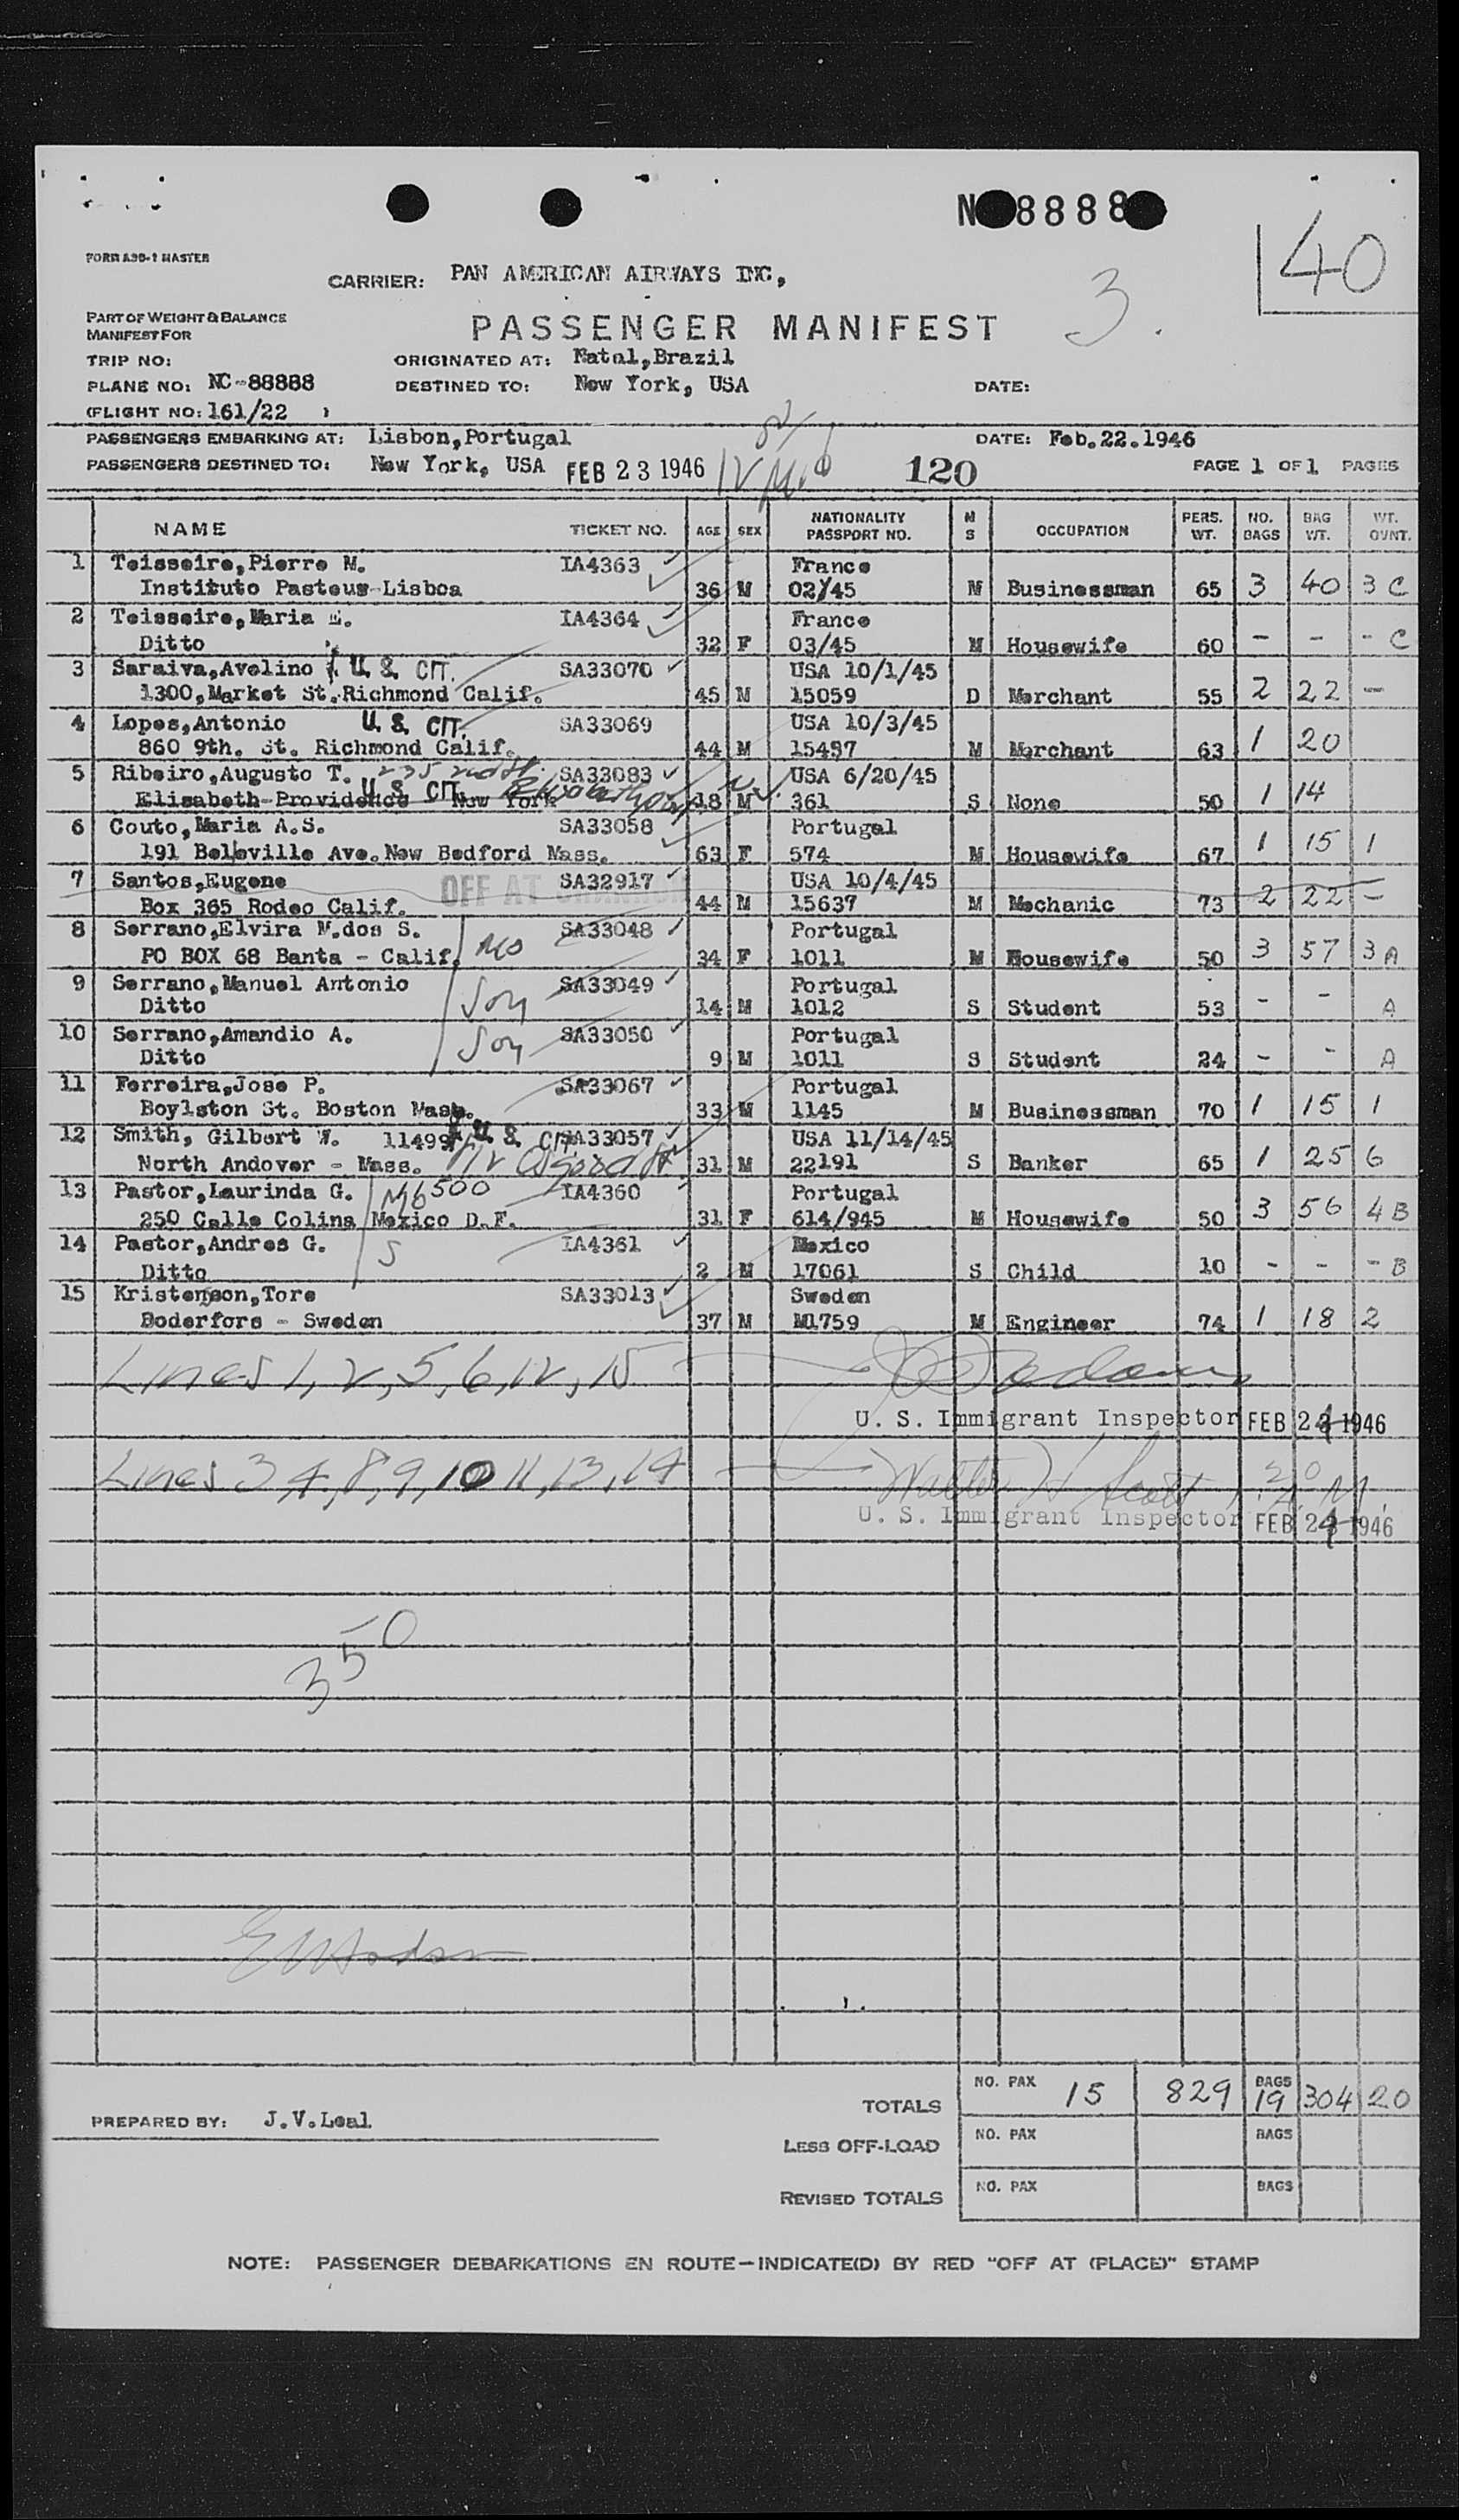 N 8888
40
FORM ASB-1 MASTER
CARRIER: PAN AMERICAN AIRWAYS INC,
3.
PART OF WEIGHT & BALANCE
MANIFEST FOR
PASSENGER MANIFEST
TRIP NO: ORIGINATED AT: Natal,Brazil
PLANE NO: NC-88888 DESTINED TO: New York, USA DATE:
(FLIGHT NO: 161/22 )
PASSENGERS EMBARKING AT: Lisbon,Portugal DATE: Feb.22.1946
PASSENGERS DESTINED TO: New York, USA FEB 23 1946 120 PAGE 1 OF 1 PAGES
NAME TICKET NO. AGE SEX NATIONALITY PASSPORT NO. M S OCCUPATION PERS. WT. NO. BAGS BAG WT. WT. OVNT.
1 Teisseire,Pierre M. IA4363 France
Instituto Pasteur-Lisboa 36 M 02/45 M Businessman 65 3 40 3 C
2 Teisseire,Maria E. IA4364 France
Ditto 32 F 03/45 M Housewife 60 - - - C
3 Saraiva,Avelino U. S. CIT. SA33070 USA 10/1/45
1300,Market St.Richmond Calif. 45 M 15059 D Merchant 55 2 22 -
4 Lopes,Antonio U. S. CIT. SA33069 USA 10/3/45
860 9th. St. Richmond Calif. 44 M 15437 M Merchant 63 1 20
5 Ribeiro,Augusto T. 235 SA33083 USA 6/20/45
Elisabeth-Providence U. S. CIT. New York N.J. 18 M 361 S None 50 1 14
6 Couto,Maria A.S. SA33058 Portugal
191 Belleville Ave.New Bedford Mass. 63 F 574 M Housewife 67 1 15 1
7 Santos,Eugene OFF AT SA32917 USA 10/4/45
Box 365 Rodeo Calif. 44 M 15637 M Mechanic 73 2 22 -
8 Serrano,Elvira M.dos S. SA33048 Portugal
PO BOX 68 Banta - Calif. Mo 34 F 1011 M Housewife 50 3 57 3 A
9 Serrano,Manuel Antonio SA33049 Portugal
Ditto Son 14 M 1012 S Student 53 - - A
10 Serrano,Amandio A. SA33050 Portugal
Ditto Son 9 M 1011 S Student 24 - - A
11 Ferreira,Jose P. SA33067 Portugal
Boylston St. Boston Mass. 33 M 1145 M Businessman 70 1 15 1
12 Smith, Gilbert W. 11499 U. S. CIT. SA33057 USA 11/14/45
North Andover - Mass. Osgood St 31 M 22191 S Banker 65 1 25 6
13 Pastor,Laurinda G. 500 IA4360 Portugal
250 Calle Colina Mexico D.F. 31 F 614/945 M Housewife 50 3 56 4 B
14 Pastor,Andres G. S IA4361 Mexico
Ditto 2 M 17061 S Child 10 - - - B
15 Kristenson,Tore SA33013 Sweden
Boderfors - Sweden 37 M M1759 M Engineer 74 1 18 2
Lines 1, 2, 5, 6, 12, 15
U. S. Immigrant Inspector FEB 24 1946
Lines 3, 4, 8, 9, 10 11, 13, 14 Walter H Scott
U. S. Immigrant Inspector FEB 24 1946
350
TOTALS NO. PAX 15 829 BAGS 19 304 20
PREPARED BY: J.V.Leal
LESS OFF-LOAD NO. PAX BAGS
REVISED TOTALS NO. PAX BAGS
NOTE: PASSENGER DEBARKATIONS EN ROUTE—INDICATE(D) BY RED "OFF AT (PLACE)" STAMP